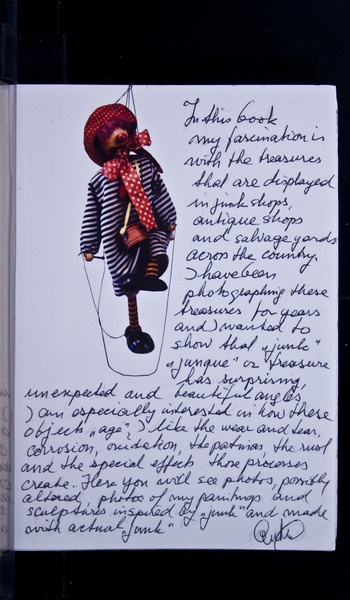 In this book
my fascination is
with the treasures
that are displayed
in junk shops,
antique shops
and salvage yards
across the country.
I have been
photographing these
treasures for years
and I wanted to
show that „junk"
„junque" or "treasure
has surprising,
unexpected and beautiful angles,
I am especially interested in how these
objects „age". I like the wear and tear,
corrosion, oxidation, the patinas, the rust
and the special effects those processes
create. Here you will see photos, possibly
altered, photos of my paintings and
sculptures inspired by „junk" and made
with actual „junk"